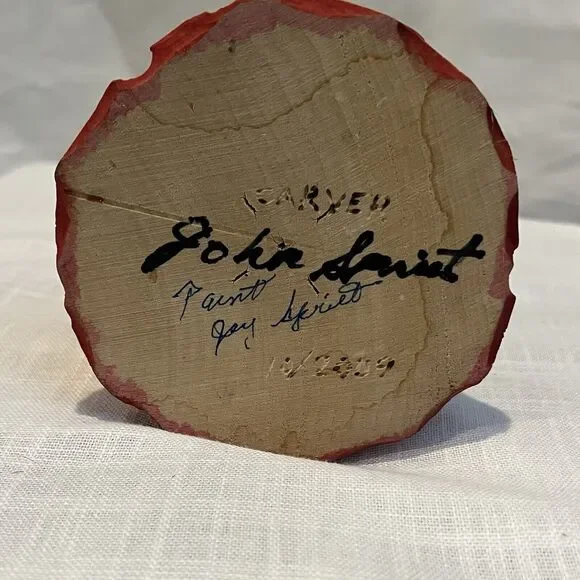 CARVED
John Spriet
Paint
Joy Spriet
10/2009